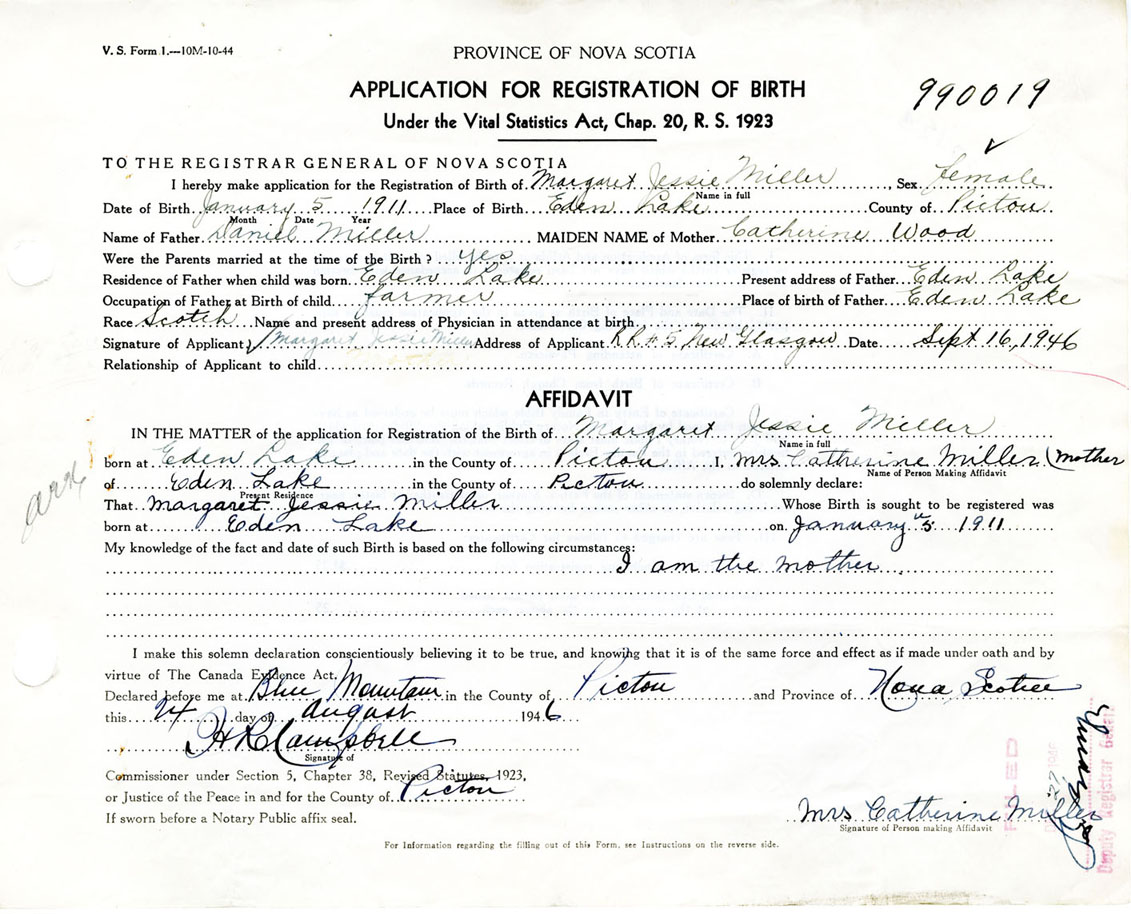 V. S. Form 1.—10M-10-44
PROVINCE OF NOVA SCOTIA
APPLICATION FOR REGISTRATION OF BIRTH
990019
Under the Vital Statistics Act, Chap. 20, R. S. 1923
TO THE REGISTRAR GENERAL OF NOVA SCOTIA
I hereby make application for the Registration of Birth of Margaret Jessie Miller, Sex Female
Name in full
Date of Birth January 5 1911 Place of Birth Eden Lake County of Pictou
Month Date Year
Name of Father Daniel Miller MAIDEN NAME of Mother Catherine Wood
Were the Parents married at the time of the Birth? yes
Residence of Father when child was born Eden Lake Present address of Father Eden Lake
Occupation of Father at Birth of child farmer Place of birth of Father Eden Lake
Race Scotch Name and present address of Physician in attendance at birth
Signature of Applicant Margaret Jessie Miller Address of Applicant R.R.#5 New Glasgow Date Sept 16, 1946
Relationship of Applicant to child
AFFIDAVIT
IN THE MATTER of the application for Registration of the Birth of Margaret Jessie Miller
Name in full
born at Eden Lake in the County of Pictou I, Mrs. Catherine Miller (Mother
Name of Person Making Affidavit
of Eden Lake in the County of Pictou do solemnly declare:
Present Residence
That Margaret Jessie Miller Whose Birth is sought to be registered was
born at Eden Lake on January 5 1911
My knowledge of the fact and date of such Birth is based on the following circumstances:
I am the mother
I make this solemn declaration conscientiously believing it to be true, and knowing that it is of the same force and effect as if made under oath and by
virtue of The Canada Evidence Act,
Declared before me at Blue Mountain in the County of Pictou and Province of Nova Scotia
this 24 day of August 1946
H R Campbell
Signature of
Commissioner under Section 5, Chapter 38, Revised Statutes, 1923,
or Justice of the Peace in and for the County of Pictou
If sworn before a Notary Public affix seal.
Mrs Catherine Miller
Signature of Person making Affidavit
For Information regarding the filling out of this Form, see Instructions on the reverse side.
FILED
Deputy Registrar General